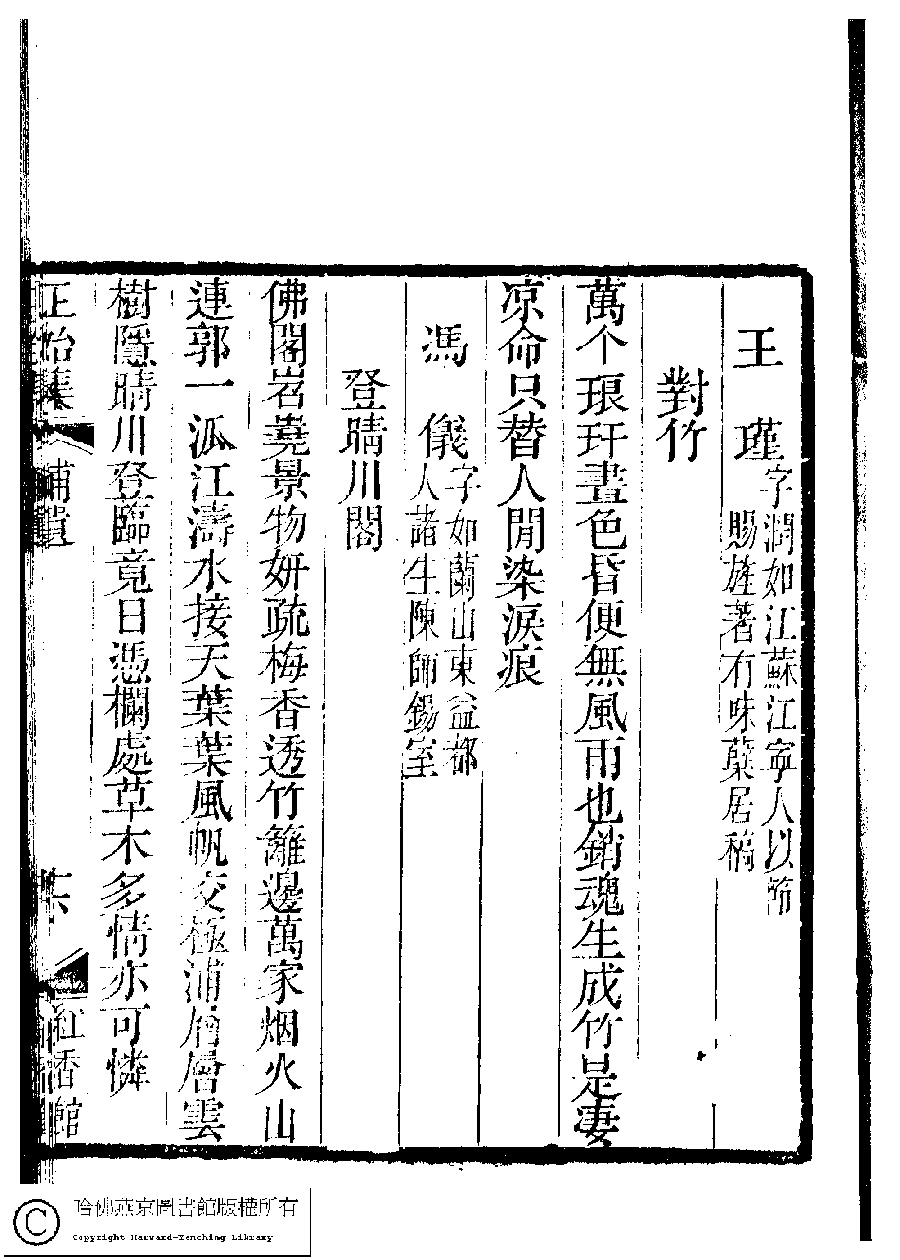 王　瑾字潤如江蘇江寧人以節
賜旌著有味蘗居稿
對竹
萬个琅玕晝色昏便無風雨也銷魂生成竹是淒
凉命只替人閒染淚痕
馮　儀字如蘭山東益都
人諸生陳師錫室
登晴川閣
佛閣岧嶤景物妍疏梅香透竹籬邊萬家烟火山
連郭一派江濤水接天葉葉風帆交極浦層層雲
樹隱晴川登臨竟日憑欄處草木多情亦可憐
正始集　補遺　　紅香館
哈佛燕京圖書館版權所有
Copyright Harvard-Yenching Library